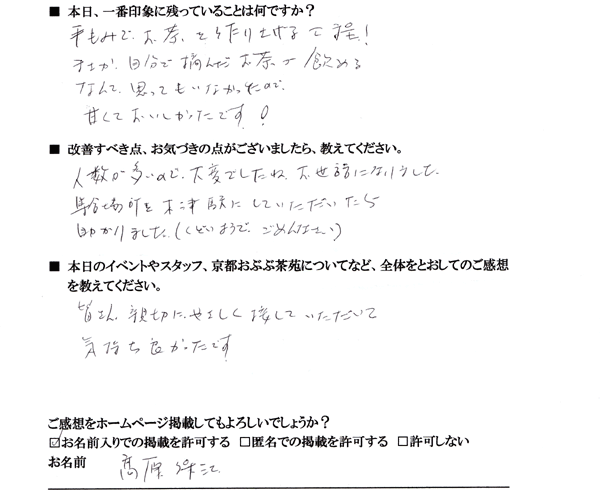 ■ 本日、一番印象に残っていることは何ですか？
手もみで、お茶を作り上げる工程！
まさか、自分で摘んだお茶が飲める
なんて、思ってもいなかったので、
甘くておいしかったです！
■ 改善すべき点、お気づきの点がございましたら、教えてください。
人数が多いので、大変でしたね、お世話になりました。
集合場所を木津駅にしていただいたら
助かりました。(くどいようで、ごめんなさい)
■ 本日のイベントやスタッフ、京都おぶぶ茶苑についてなど、全体をとおしてのご感想
を教えてください。
皆さん、親切に、やさしく接していただいて
気持ち良かったです
ご感想をホームページ掲載してもよろしいでしょうか？
☑お名前入りでの掲載を許可する □匿名での掲載を許可する □許可しない
お名前 高原